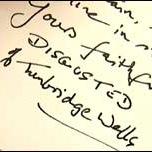 in,
in
Yours faithf
DISGUSTED
of Tunbridge Wells